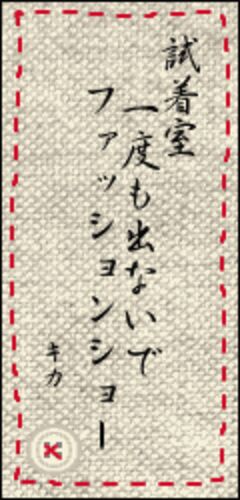 試着室
一度も出ないで
ファッションショー
キカ